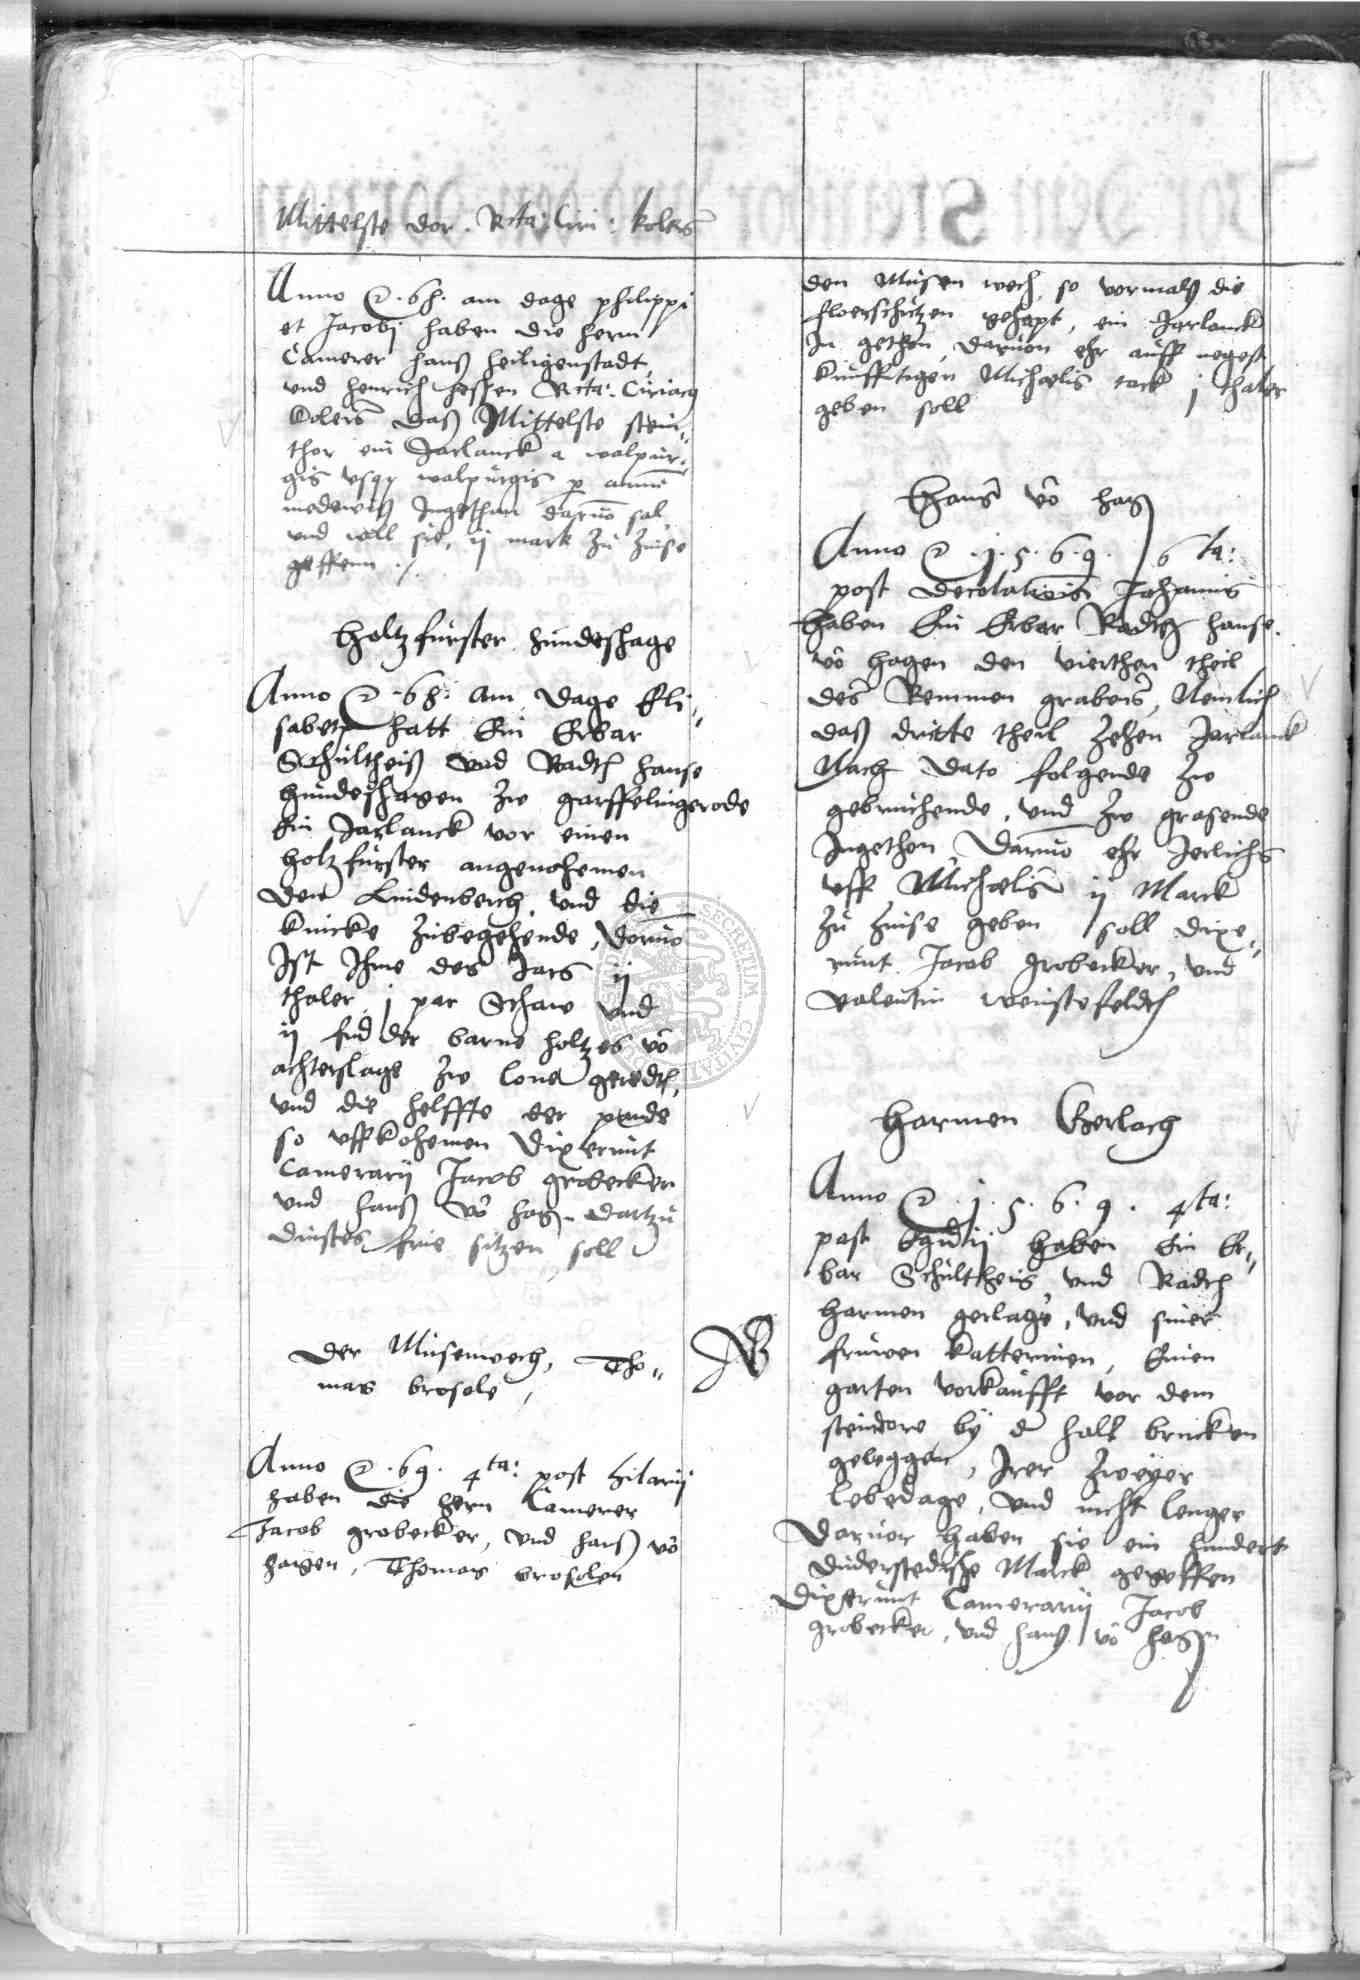 Mittelste dor. Rcta: Ciri: kolers
Anno &. 68. am dage philippi
et Jacobi haben die hern
Camerer hanß heiligenstadt,
vnd henrich hessen Rcta: Ciriacj
Colers daß Mittelste stein„
thor ein Jarlanck a walpur„
gis vsqꝫ walpurgis
Ingethan darvō sal
vnd will sie, ij mark zu zinse
geffenn
holtzfurster hundeshage
Anno &. 68. am dage Eli„
sabeth hatt Ein Erbar
Schultheiß vnd Radth hanse
hundeshagen zw garffelingerode
Ein Jarlanck vor einen
holtzfurster angenohemen
den Lindenberch vnd die
knicke zubegehende, dorvō
Ist Ihme des Jars ij
thaler j par Schaw vnd
ij fud der barne holtzes vō
achterslage zw lone geredth,
vnd die helffte der pande
so vffkohemen Dixerunt
Camerarij Jacob grobecker
vnd hanß vō hagn dartzu
dinstes frie sitzen soll
der Musenwech, Tho„
mas brosole
Anno &. 69. 4ta: post hilarij
haben die hern Camerer
Jacob grobecker, vnd hanß vō
hagen, Thomas brosolen
den Musen wech, so vormalß die
floerschutzen gehapt, ein Jarlanck
In gethen, darvon ehr auff negest
kunfftigen Michaelis tack j thaler
geben soll
Hans vō hagn
Anno &. j. 5. 6. 9. 6ta:
post decolationis Johannis
haben Ein Erbar Radth hanse
vō hagen den vierthen theil
des Remmen grabens, Nemlich
daß dritte theil zehen Jarlanck
Nach dato folgende zw
gebruchende, vnd zw grasende
Ingethen Darvō ehr Jerlichs
vff Michaelis ij Marck
zu zinse geben soll dixe„
runt Jacob grobecker, vnd
valentin winstefeldth
Harmen Gerlach
Anno &. j. 5. 6. 9. 4ta:
post Egidij haben Ein Er„
bar Schultheis, vnd Radth
harmen gerlage, vnd siner
fruwen Katterinen, Einen
NB
garten vorkaufft vor dem
steindore by d halb brucken
geleggen, Irer zweyer
lebedage, vnd nicht lenger
Darvor haben sie ein hundert
duderstedische Marck gegeffen
Dixerunt Camerarij Jacob
grobecker, vnd hanß vō hagn